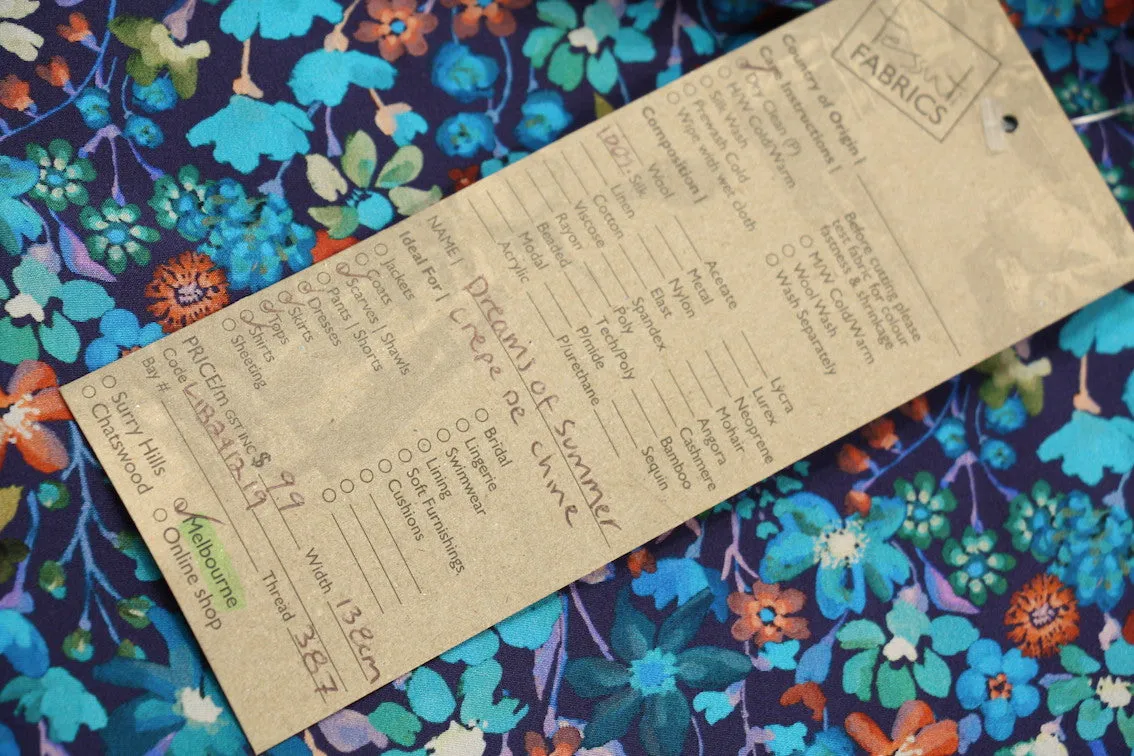 Tessuti
FABRICS
Country of Origin |
Care Instructions |
Dry Clean (P)
H/W Cold/Warm
Soft Wash
Prewash Cold
Wipe with wet cloth
Before cutting please
test fabric for colour
fastness & shrinkage
M/W Cold/Warm
Wool Wash
Wash Separately
Composition |
Wool
100% Silk
Linen
Cotton
Viscose
Rayon
Beaded
Modal
Acrylic
Acetate
Metal
Nylon
Elast
Spandex
Poly
Tech/Poly
P/mide
P/urethane
Lycra
Lurex
Neoprene
Mohair
Angora
Cashmere
Bamboo
Sequin
NAME | Dreams of Summer
crepe de chine
Ideal For |
Jackets
Coats
Scarves | Shawls
Pants | Shorts
Dresses
Skirts
Tops
Shirts
Sheeting
Bridal
Lingerie
Swimwear
Lining
Soft Furnishings
Cushions
PRICE/m GST INC $ 99 Width 138cm
Code LIB241219 Thread 387
Bay #
Surry Hills
Chatswood
Melbourne
Online shop